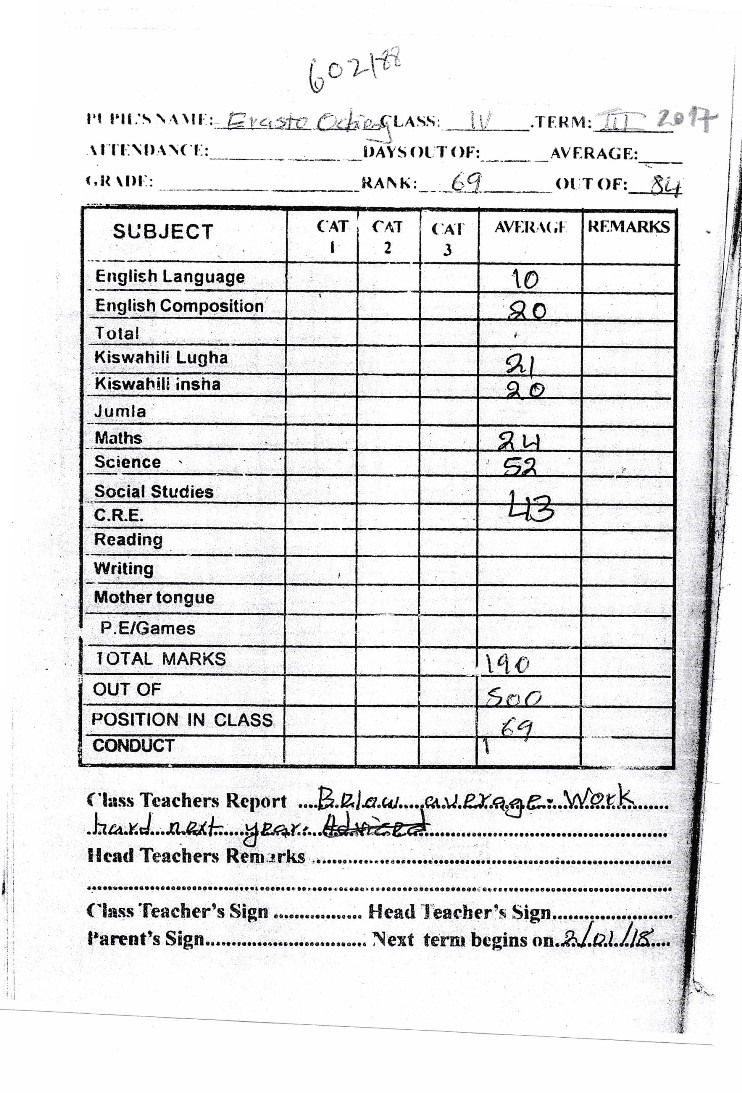 602188
PUPIL'S NAME: Erasto Ochieng CLASS: IV TERM: III 2017
ATTENDANCE: DAYS OUT OF: AVERAGE:
GRADE: RANK: 69 OUT OF: 84
SUBJECT CAT 1 CAT 2 CAT 3 AVERAGE REMARKS
English Language 10
English Composition 20
Total
Kiswahili Lugha 21
Kiswahili insha 20
Jumla
Maths 24
Science 52
Social Studies 43
C.R.E.
Reading
Writing
Mother tongue
P.E/Games
TOTAL MARKS 190
OUT OF 500
POSITION IN CLASS 69
CONDUCT
Class Teachers Report ....Below average. Work
hard next year. Adviced
Head Teachers Remarks
Class Teacher's Sign ................. Head Teacher's Sign
Parent's Sign .............................. Next term begins on..2/01/18....